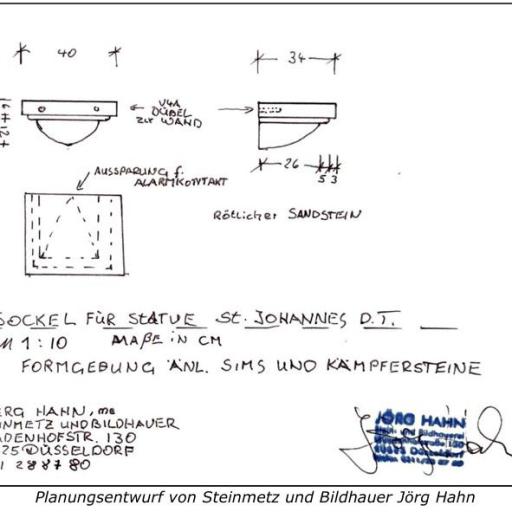 40
34
V4A
DÜBEL
zur WAND
26
5 3
AUSSPARUNG f.
ALARMKONTAKT
Rötlicher SANDSTEIN
SOCKEL FÜR STATUE St. JOHANNES D.T.
M 1:10 MAßE iN CM
FORMGEBUNG ÄNL. SIMS UND KÄMPFERSTEINE
ERG HAHN, me
NMETZ UND BILDHAUER
ADENHOFSTR. 130
25 DÜSSELDORF
1 288780
JÖRG HAHN
Stein- und Bildhauerei
Düsseldorf
Planungsentwurf von Steinmetz und Bildhauer Jörg Hahn